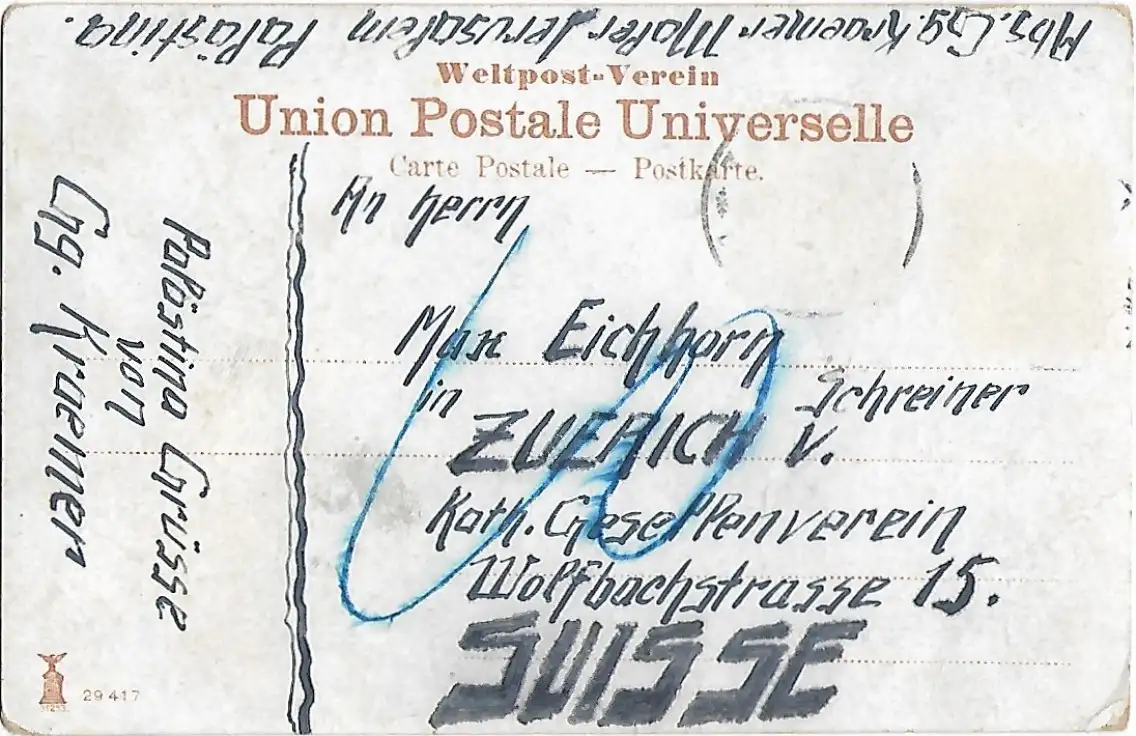 Abs. Gg. Kraemer Maler Jerusalem Palästina.
Weltpost-Verein
Union Postale Universelle
Carte Postale — Postkarte.
An Herrn
Max Eichhorn
Schreiner
in
ZUERICH V.
Kath. Gesellenverein
Wolfbachstrasse 15.
SUISSE
Palästina Grüsse
von
Gg. Kraemer
29417